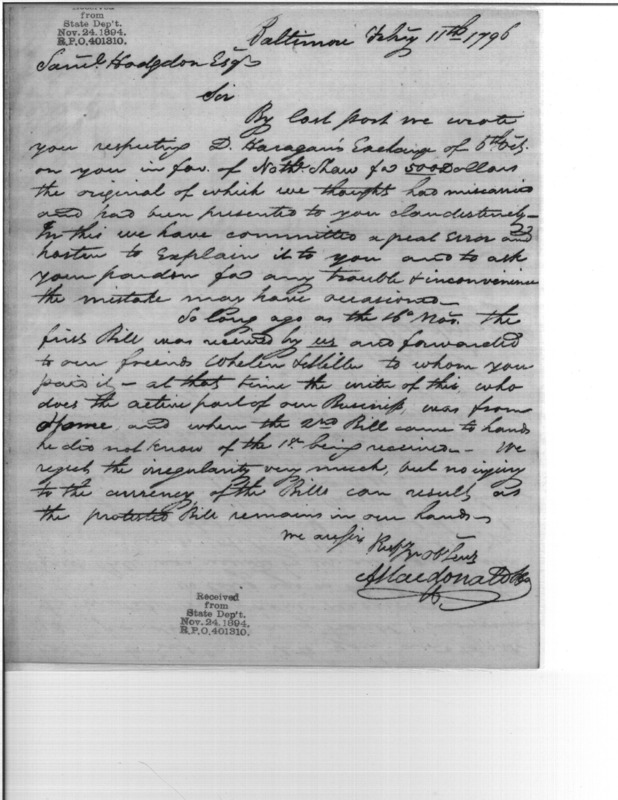 Received
from
State Dep't.
Nov. 24. 1894.
R.P.O. 401310.
Baltimore Feby 11th 1796
Saml. Hodgdon Esqr
Sir
By last post we wrote
you respecting D. Exchange of 5th Oct.
on you in fav. of Nathl. Shaw for 500 Dollars
the original of which we thought had miscarried
and had been presented to you clandestinely—
In this we have committed a great Error and
hasten to Explain it to you and to ask
your pardon for any trouble & inconvenience
the mistake may have occasioned—
So long ago as the 16th Nov. the
first Bill was received by us and forwarded
to our friends Whelen & Miller to whom you
paid it— at that time the writer of this, who
does the active part of our Business, was from
Home, and when the 2nd Bill came to hand
he did not know of the 1st being received— We
regret the irregularity very much, but no injury
to the currency of the Bills can result, as
the protested Bill remains in our hands—
we are Sir
A Macdonald & Co
Received
from
State Dep't.
Nov. 24. 1894.
R.P.O. 401310.